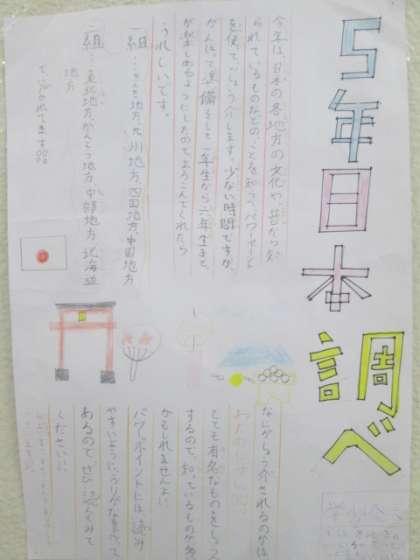 5年日本調べ
今年は、日本の各地方の文化や、昔から
られているものなどのことを知って、パワーポイント
を使ってしょうかいします。少ない時間ですが、
がんばって準備をして一年生から六年生まで、
が楽しめるようにしたのでよろこんでくれたら
うれしいです。
一組…きんき地方、九州地方、四国地方、中国地方
二組…東北地方、かんとう地方、中部地方、北海道
地方
で、分かれてます。
なにがしょうかいされるのかは、
おたのしみ
とても有名なものをしょうかい
するので、知っているものが多い
かもしれませんよ。
パワーポイントには、読み
やすいように、ふりがなもふって
あるのでぜひ読んでみて
ください。